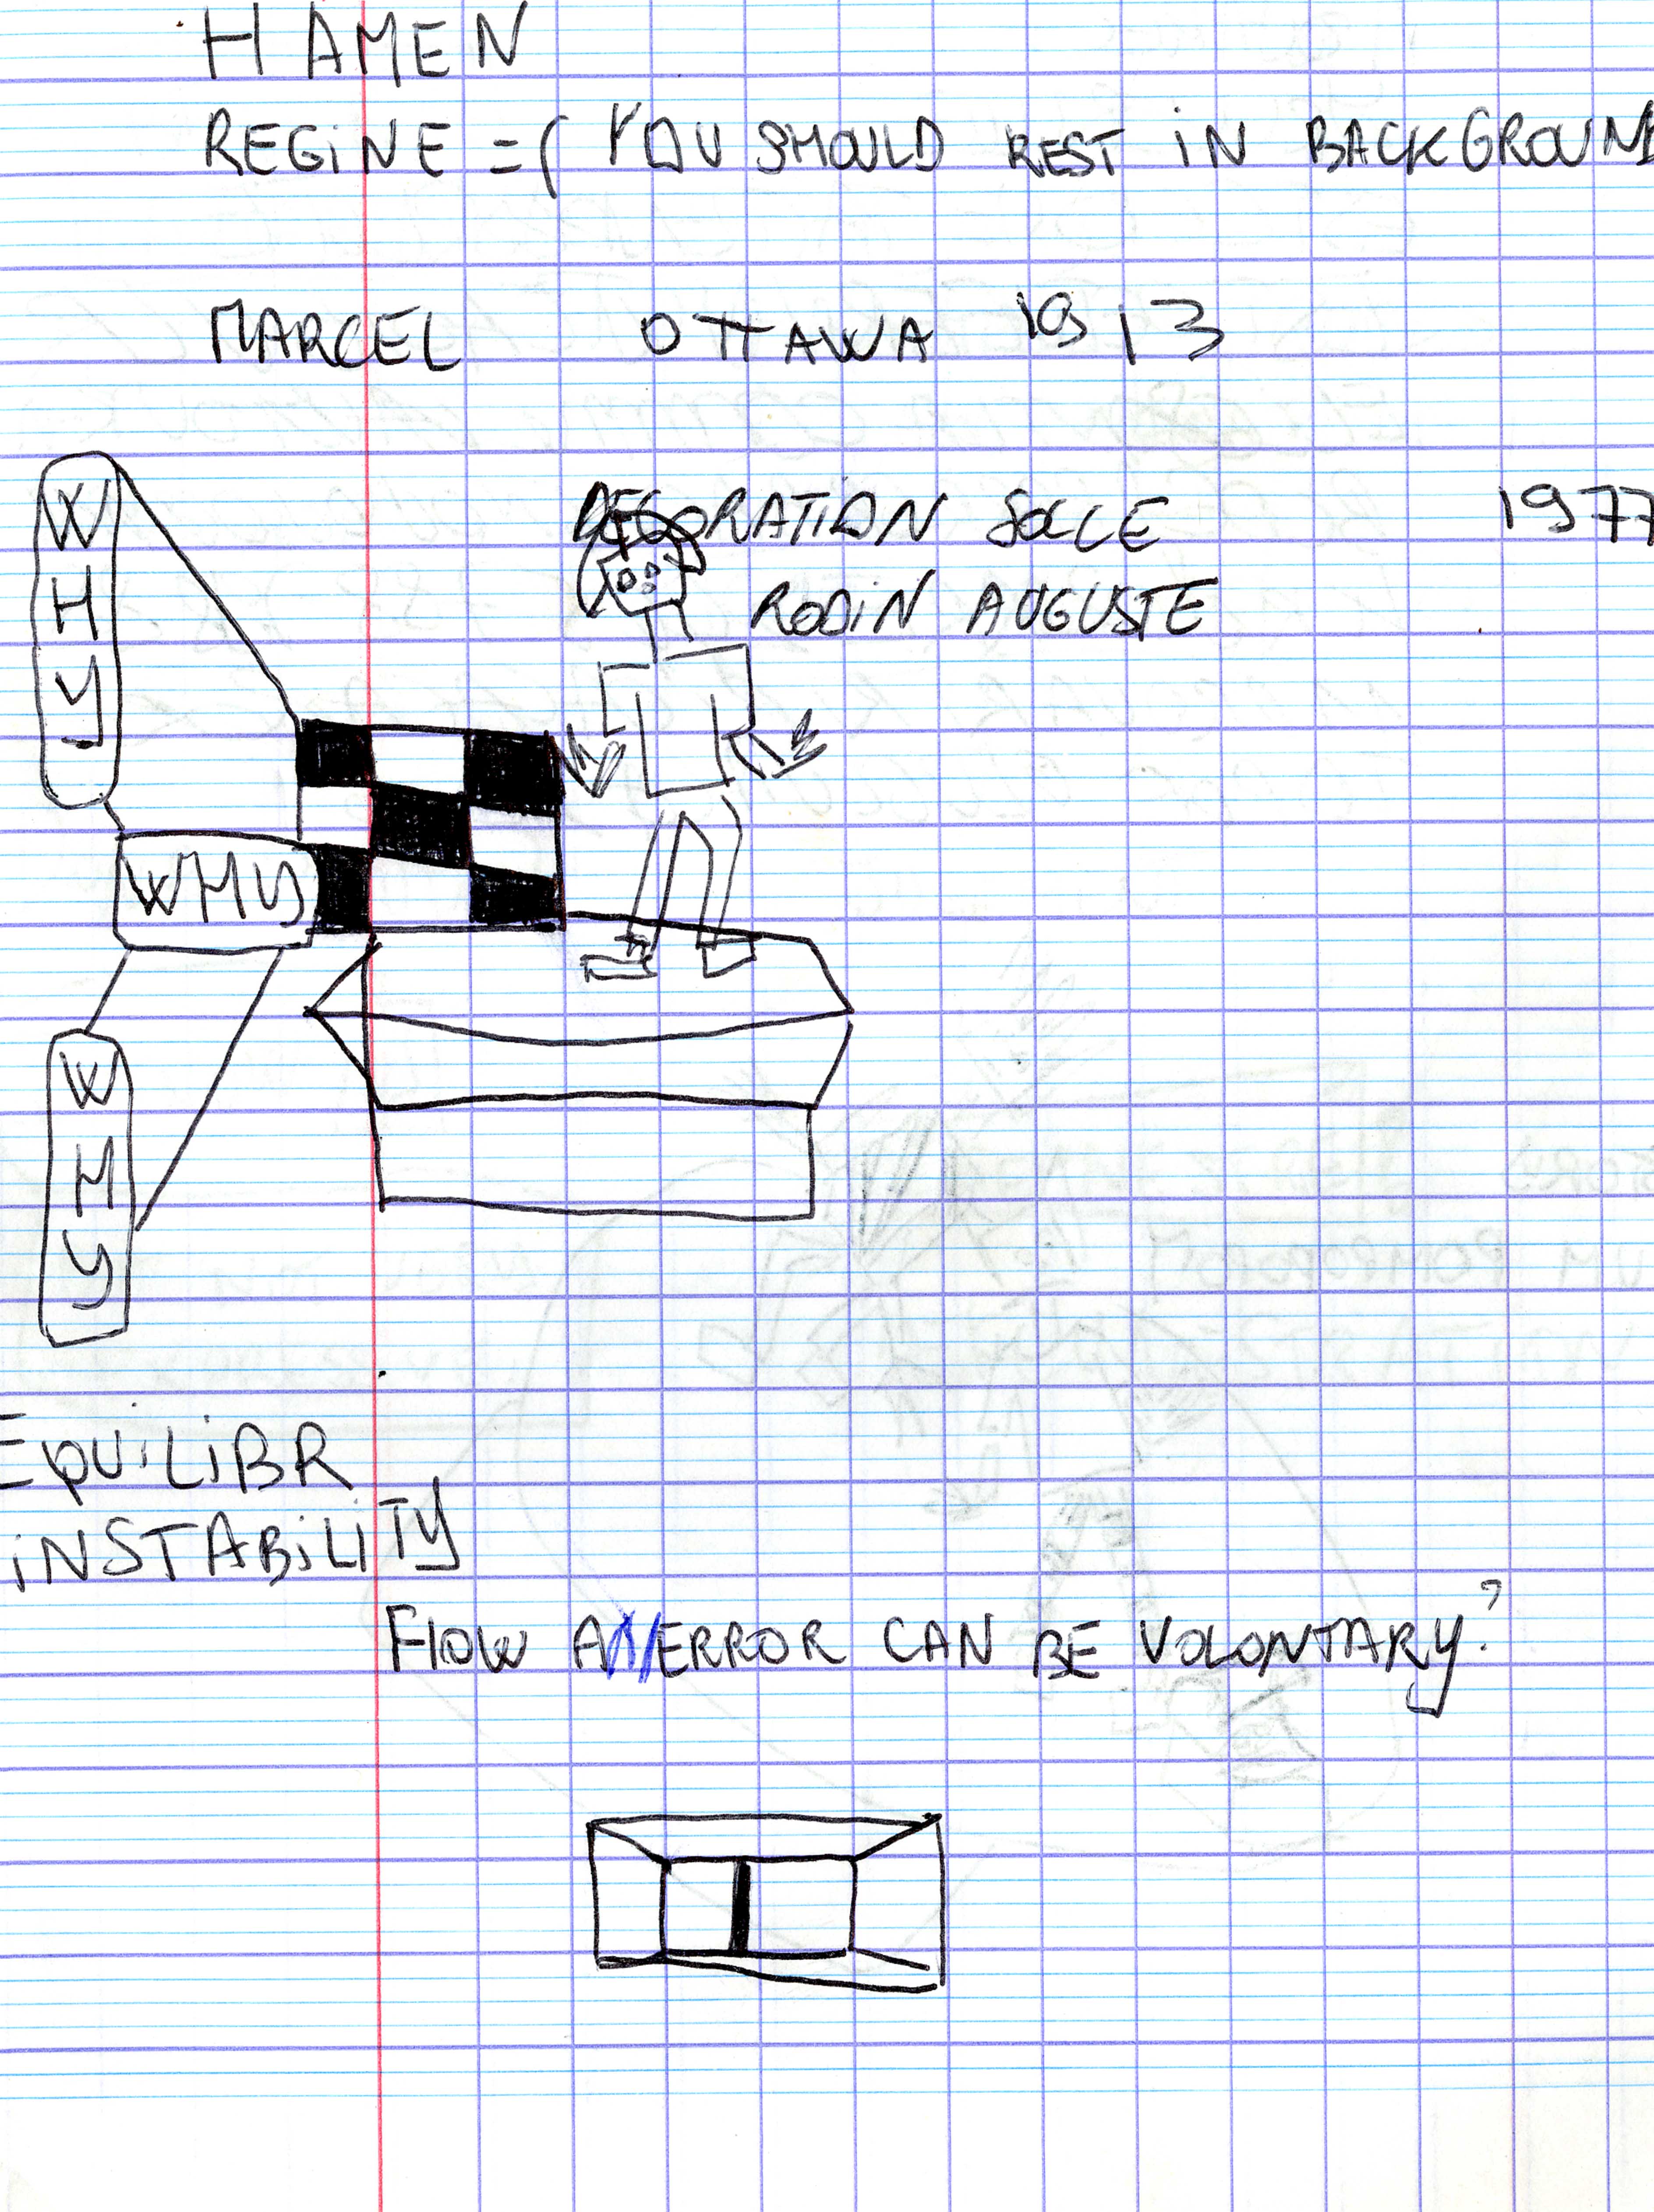 H AMEN
REGINE = ( YOU SHOULD REST IN BACKGROUND
MARCEL OTTAWA 1913
DECORATION SOCLE 1977
RODIN AUGUSTE
WHY
WHY
WHY
EQUILIBR
INSTABILITY
FLOW A ERROR CAN BE VOLONTARY?